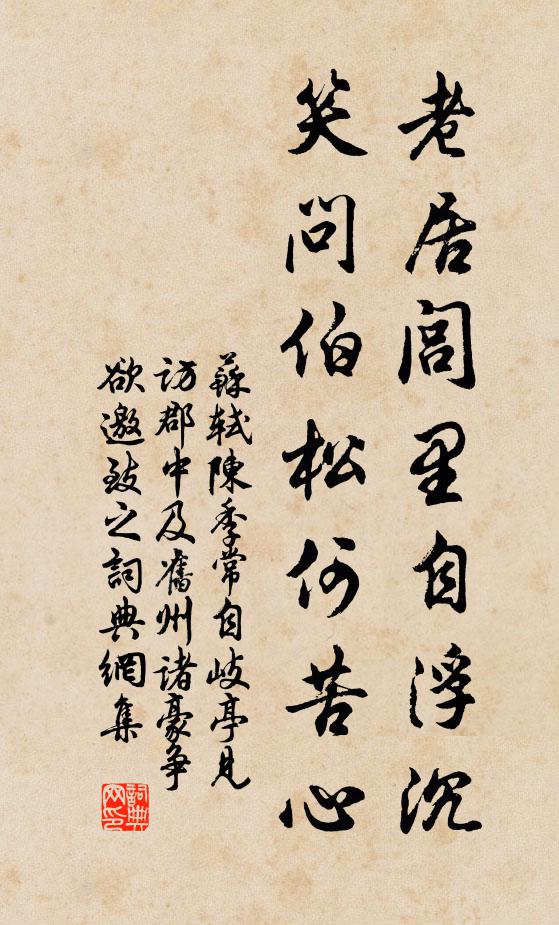 老居閭里自浮沉
笑問伯松何苦心
蘇軾陳季常自岐亭見
訪郡中及舊州諸豪爭
欲邀致之詞典網集
詞典
网印